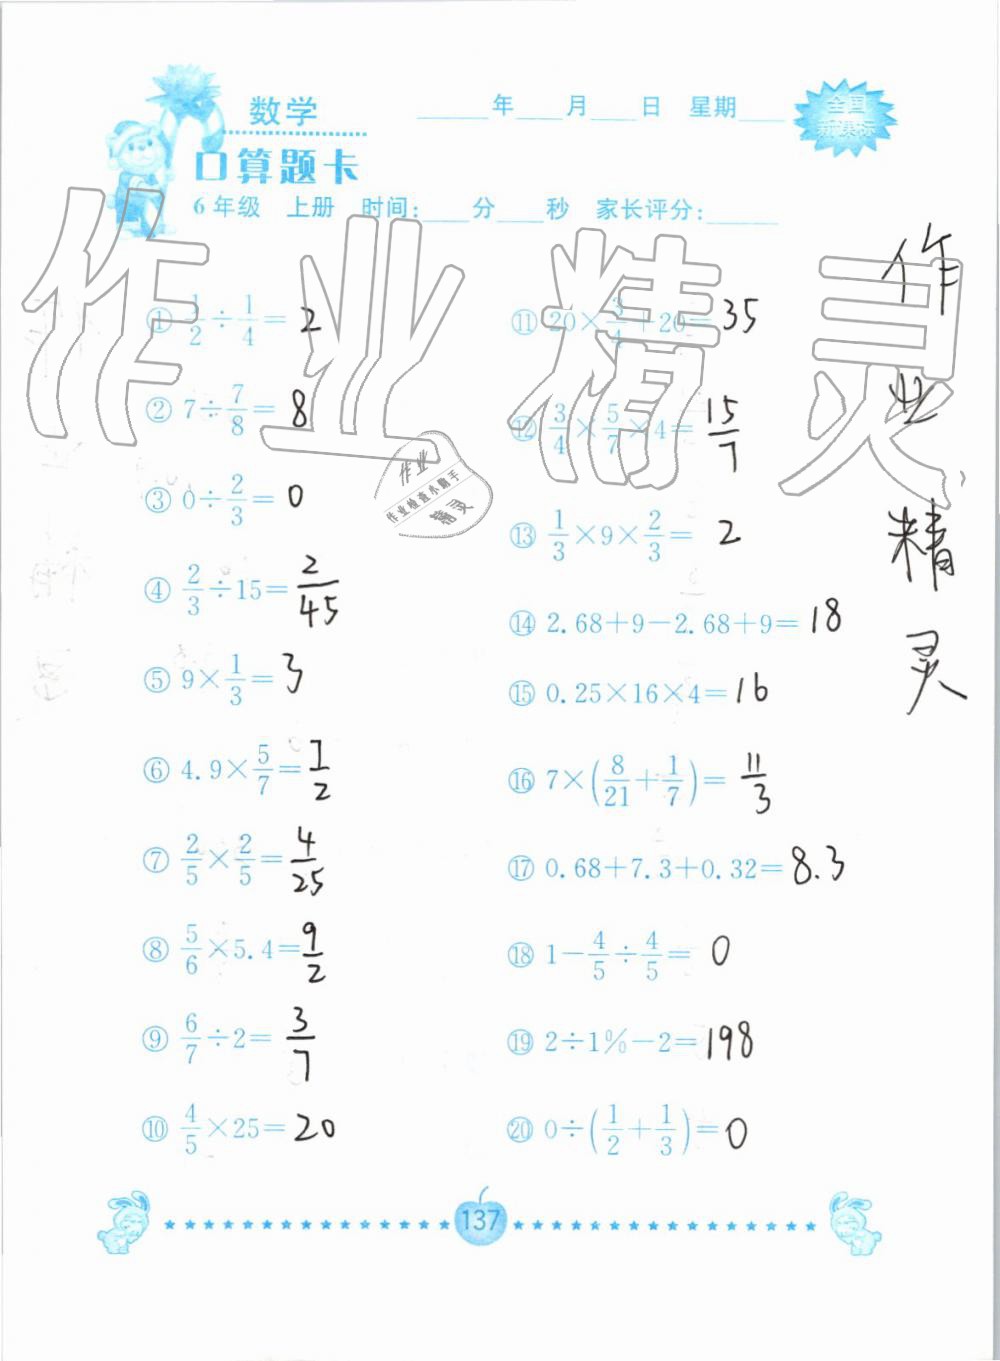 数学 ____年____月____日 星期____ 全国新课标
口算题卡
6年级 上册 时间:____分____秒 家长评分:____
作业精灵
作业精灵
作业
作业检查小助手
精灵
① 1/2÷1/4= 2
② 7÷7/8= 8
③ 0÷2/3= 0
④ 2/3÷15= 2/45
⑤ 9×1/3= 3
⑥ 4.9×5/7= 7/2
⑦ 2/5×2/5= 4/25
⑧ 5/6×5.4= 9/2
⑨ 6/7÷2= 3/7
⑩ 4/5×25= 20
⑪ 20×3/4+20= 35
⑫ 3/4×5/7×4= 15/7
⑬ 1/3×9×2/3= 2
⑭ 2.68+9-2.68+9= 18
⑮ 0.25×16×4= 16
⑯ 7×(8/21+1/7)= 11/3
⑰ 0.68+7.3+0.32= 8.3
⑱ 1-4/5÷4/5= 0
⑲ 2÷1%-2= 198
⑳ 0÷(1/2+1/3)= 0
137